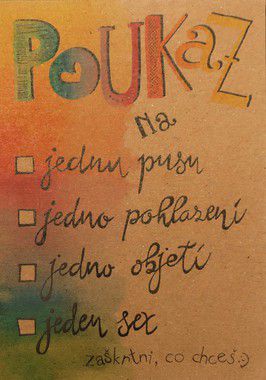 POUKAZ
Na
jednu pusu
jedno pohlazení
jedno objetí
jeden sex
zaškrtni, co chceš:)